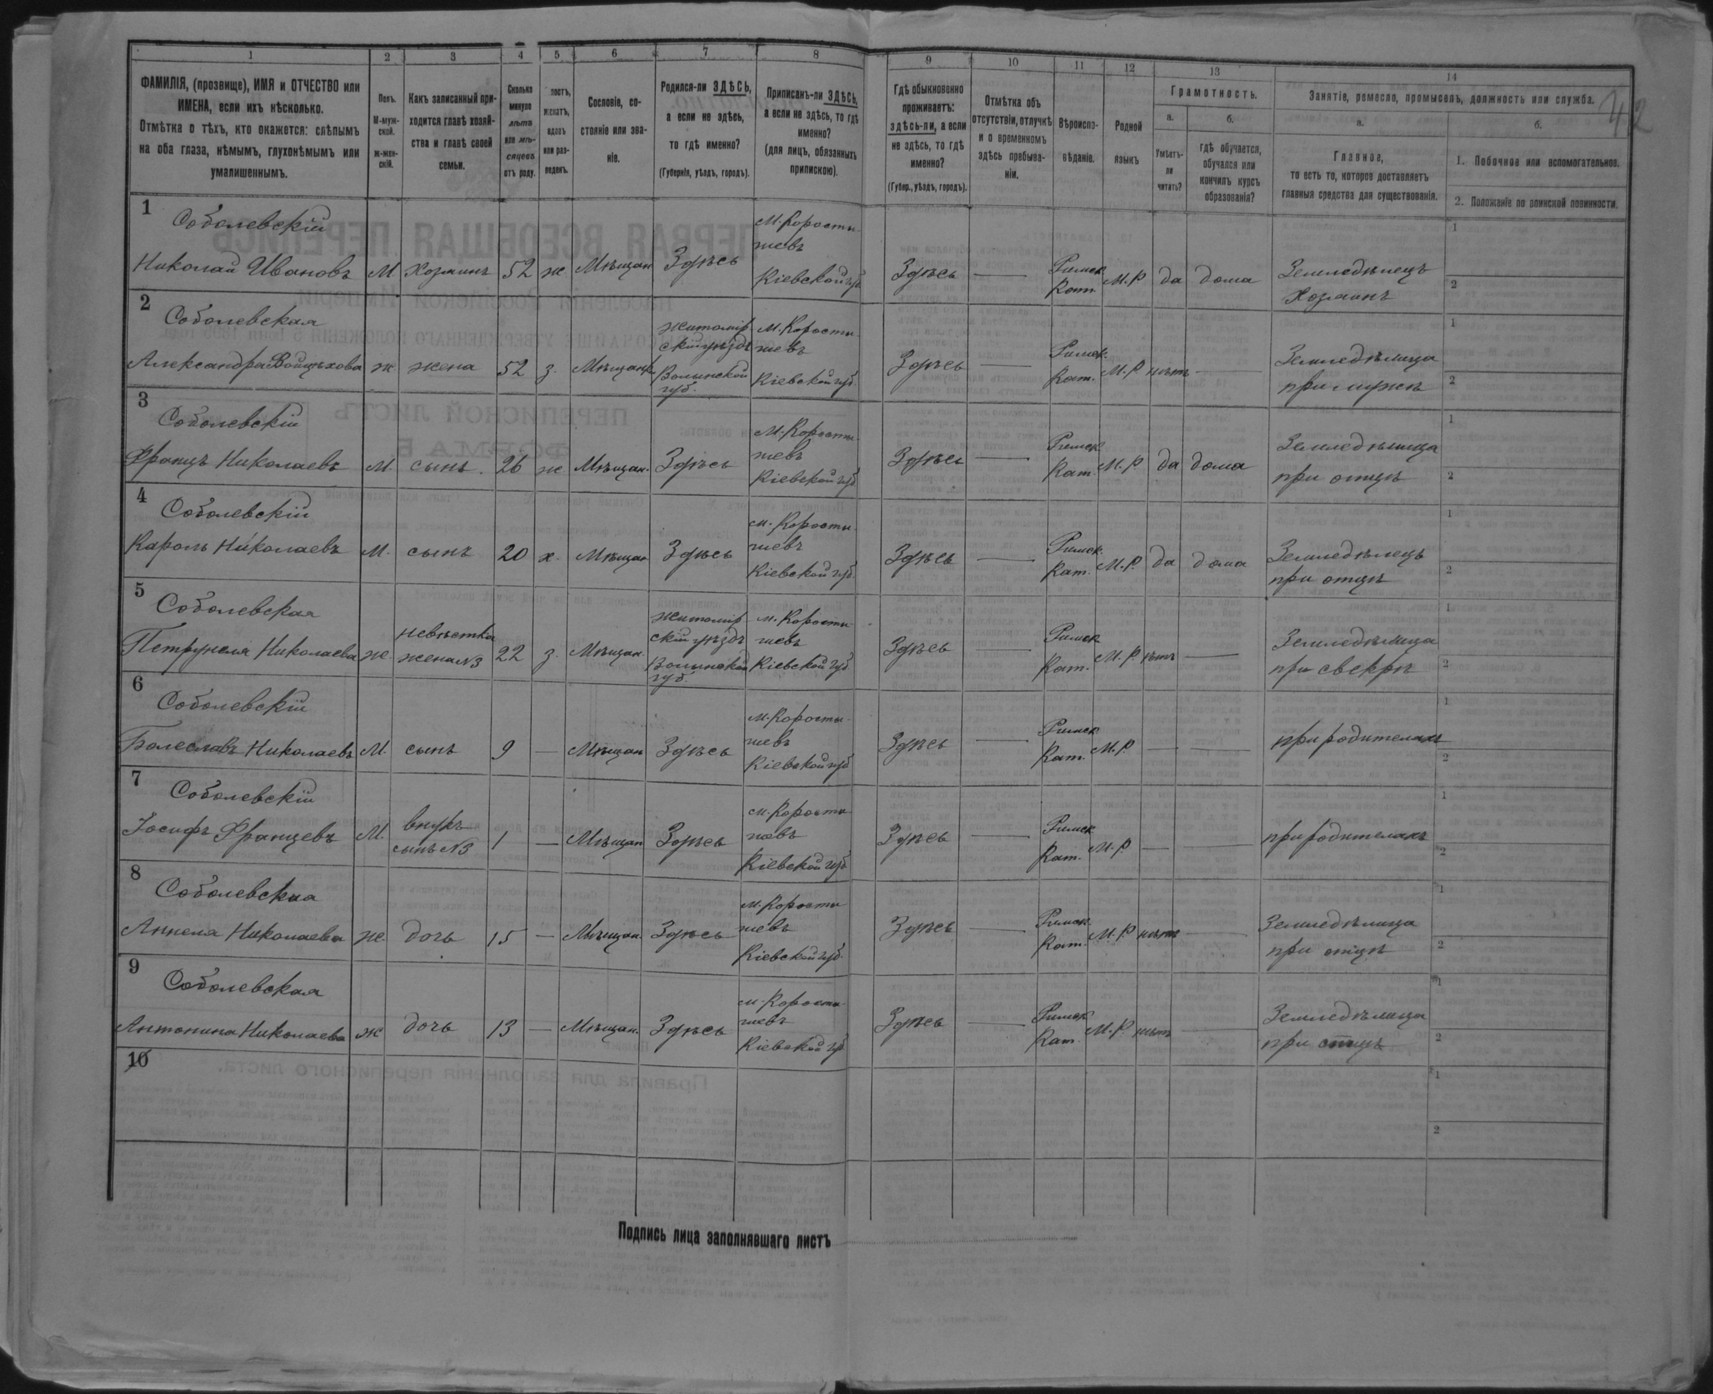 42
1 2 3 4 5 6 7 8 9 10 11 12 13 14
ФАМИЛІЯ, (прозвище), ИМЯ и ОТЧЕСТВО или
ИМЕНА, если ихъ нѣсколько.
Отмѣтка о тѣхъ, кто окажется: слѣпымъ
на оба глаза, нѣмымъ, глухонѣмымъ или
умалишеннымъ.
Полъ.
М-муж-
ской.
Ж-жен-
скій.
Какъ записанный при-
ходится главѣ хозяй-
ства и главѣ своей
семьи.
Сколько
минуло
лѣтъ
или мѣ-
сяцевъ
отъ роду.
лостъ,
женатъ,
вдовъ
или раз-
веденъ.
Сословіе, со-
стояніе или зва-
ніе.
Родился-ли ЗДѢСЬ,
а если не здѣсь,
то гдѣ именно?
(Губернія, уѣздъ, городъ).
Приписанъ-ли ЗДѢСЬ,
а если не здѣсь, то гдѣ
именно?
(для лицъ, обязанныхъ
припискою).
Гдѣ обыкновенно
проживаетъ:
здѣсь-ли, а если
не здѣсь, то гдѣ
именно?
(Губер., уѣздъ, городъ).
Отмѣтка объ
отсутствіи, отлучкѣ
и о временномъ
здѣсь пребыва-
ніи.
Вѣроиспо-
вѣданіе.
Родной
языкъ
Грамотность.
а.
Умѣетъ-
ли
читать?
б.
гдѣ обучается,
обучался или
кончилъ курсъ
образованія?
Занятіе, ремесло, промыселъ, должность или служба.
а.
Главное,
то есть то, которое доставляетъ
главныя средства для существованія.
б.
1. Побочное или вспомогательное.
2. Положеніе по воинской повинности.
1 Соболевскій м. Коросты- 1
шевъ
Николай Ивановъ М хозяинъ 52 ж Мѣщан Здѣсь Кіевской губ Здѣсь — Римск Кат. М.Р да дома Земледѣлецъ Хозяинъ 2
2 Соболевская житомір м. Коросты- 1
скій уѣздъ шевъ
Александра Войцѣхова ж жена 52 з. Мѣщанк Волынской губ. Кіевской губ. Здѣсь — Римск Кат. М.Р нѣтъ — Земледѣлица при мужѣ 2
3 Соболевскій м. Коросты- 1
шевъ
Францъ Николаевъ М сынъ 26 ж Мѣщан. Здѣсь Кіевской губ Здѣсь — Римск Кат. М.Р да дома Земледѣлица при отцѣ 2
4 Соболевскій м. Коросты- 1
шевъ
Кароль Николаевъ М. сынъ 20 х. Мѣщан Здѣсь Кіевской губ. Здѣсь — Римск Кат. М.Р. да дома Земледѣлецъ при отцѣ 2
5 Соболевская житомір м. Коросты 1
невѣстка скій уѣздъ шевъ
Петрунеля Николаева ж жена №3 22 з. Мѣщан. Волынской губ. Кіевской губ Здѣсь — Римск Кат. М.Р нѣтъ — Земледѣлица при свекрѣ 2
6 Соболевскій м. Коросты- 1
шевъ
Болеславъ Николаевъ М. сынъ 9 — Мѣщан Здѣсь Кіевской губ Здѣсь — Римск Кат. М.Р — — при родителяхъ 2
7 Соболевскій м. Коросты 1
внукъ шевъ
Іосифъ Францевъ М. сынъ №3 1 — Мѣщан Здѣсь Кіевской губ Здѣсь — Римск Кат. М.Р — — при родителяхъ 2
8 Соболевская м. Коросты 1
шевъ
Аннела Николаева ж. дочь 15 — Мѣщан. Здѣсь Кіевской губ. Здѣсь — Римск Кат. М.Р нѣтъ — Земледѣлица при отцѣ 2
9 Соболевская м. Коросты- 1
шевъ
Антонина Николаева ж дочь 13 — Мѣщан. Здѣсь Кіевской губ Здѣсь — Римск Кат. М.Р нѣтъ — Земледѣлица при отцѣ 2
10 1
2
Подпись лица заполнявшаго листъ